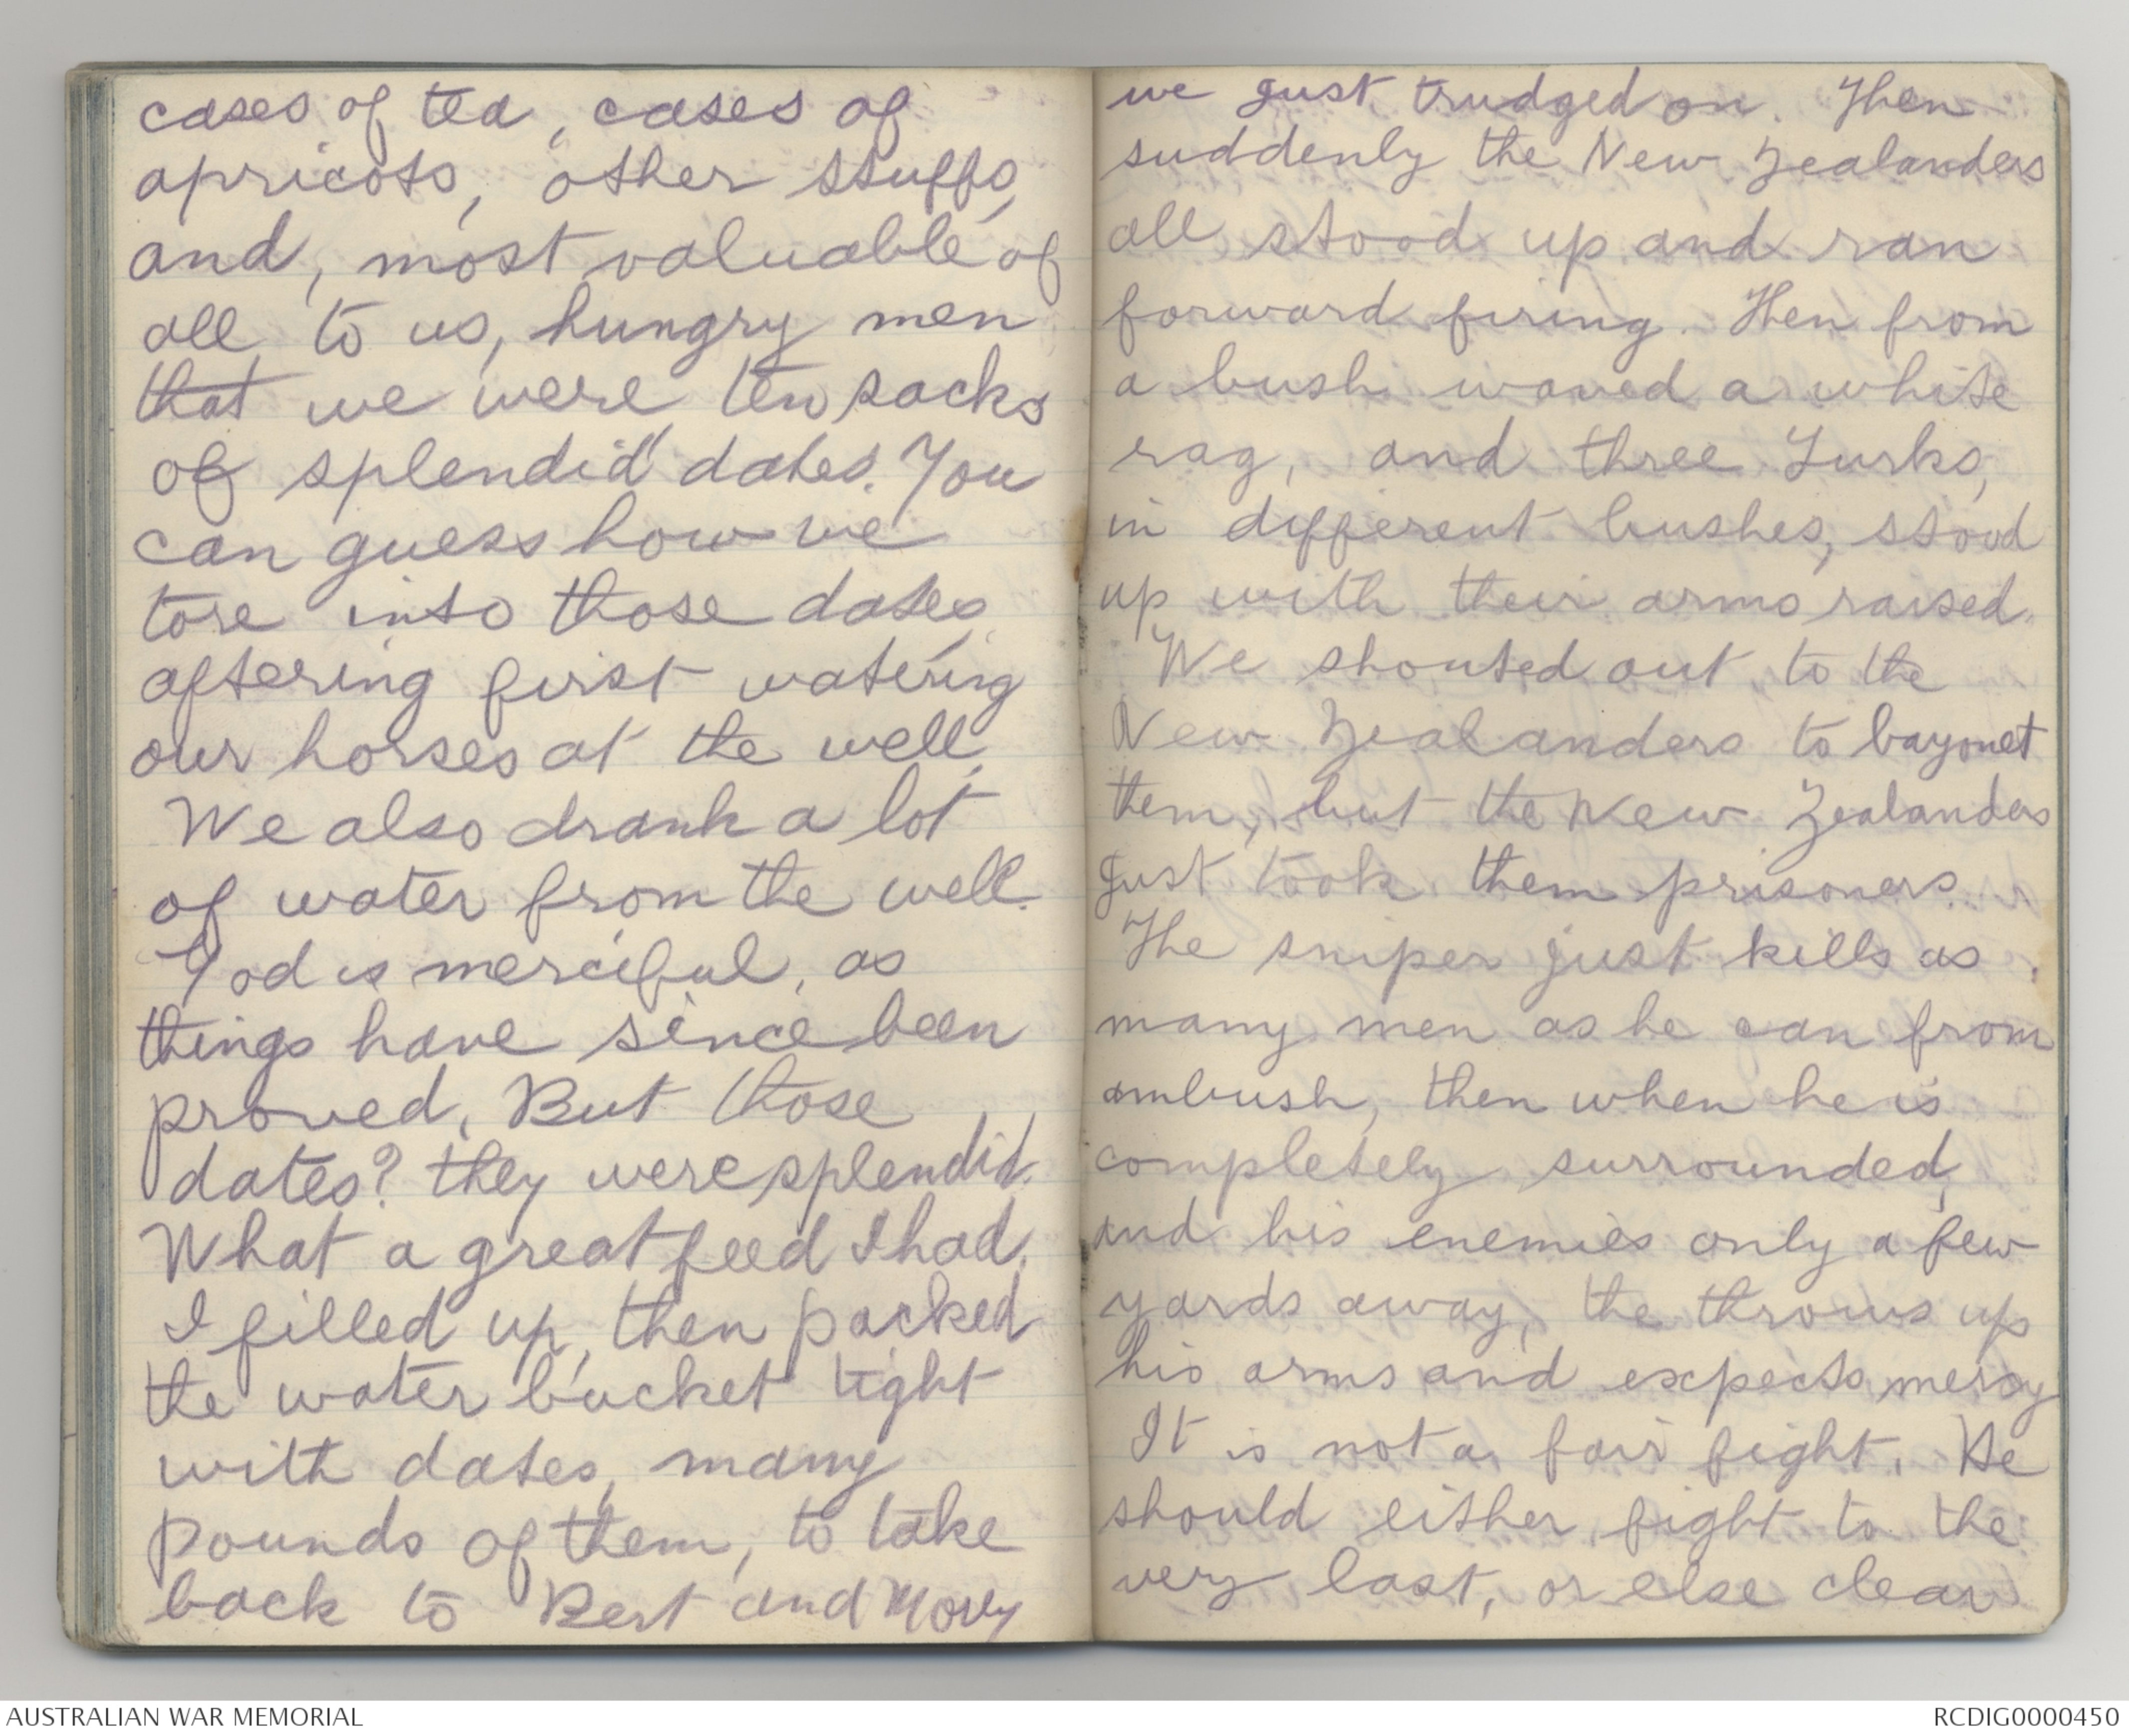 cases of tea, cases of
apricots, other stuffs,
and, most valuable of
all to us, hungry men
that we were ten sacks
of splendid dates. You
can guess how we
tore into those dates,
aftering first watering
our horses at the well.
We also drank a lot
of water from the well.
God is merciful, as
things have since been
proved. But those
dates? they were splendid.
What a great feed I had.
I filled up, then packed
the water bucket tight
with dates, many
pounds of them, to take
back to Bert and Morry
we just trudged on. Then
suddenly the New Zealanders
all stood up and ran
forward firing. Then from
a bush waved a white
rag, and three Turks,
in different bushes, stood
up with their arms raised.
We shouted out to the
New Zealanders to bayonet
them, but the New Zealanders
just took them prisoners.
The sniper just kills as
many men as he can from
ambush, then when he is
completely surrounded,
and his enemies only a few
yards away, the throws up
his arms and expects mercy
It is not a fair fight. He
should either fight to the
very last, or else clear
AUSTRALIAN WAR MEMORIAL
RCDIG0000450